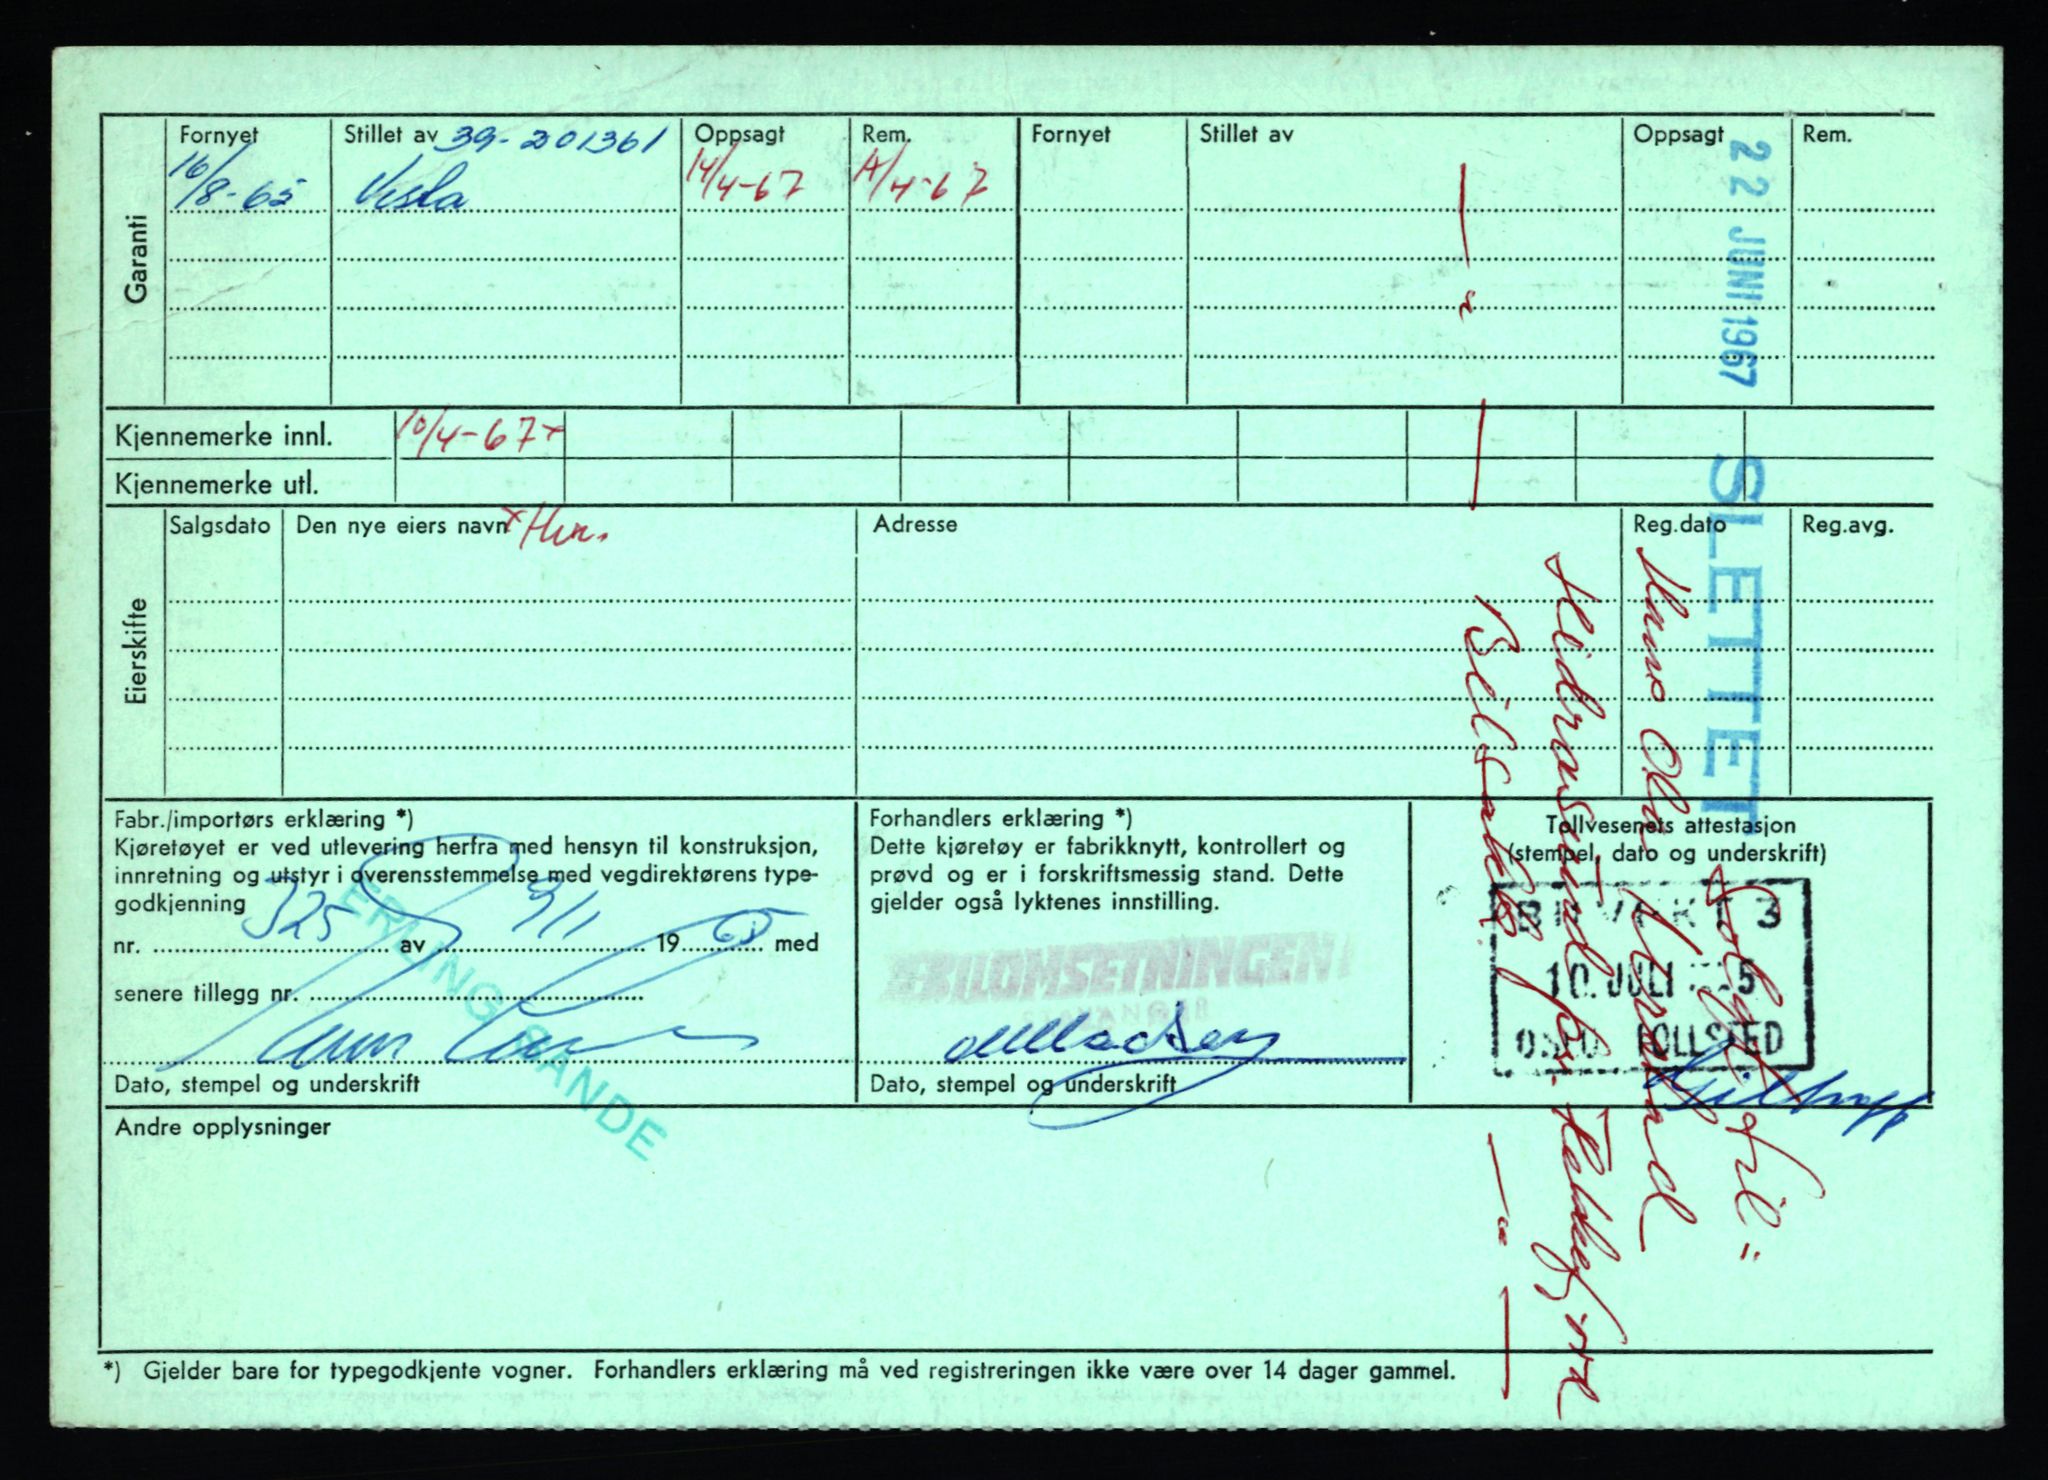 Garanti
Fornyet
Stillet av 39-201361
Oppsagt
Rem.
Fornyet
Stillet av
Oppsagt
Rem.
16/8-65
Vesta
14/4-67
/4-67
22 JUNI 1967
Kjennemerke innl.
10/4-67x
Kjennemerke utl.
SLETTET
Eierskifte
Salgsdato
Den nye eiers navn
x Hen.
Adresse
Reg.dato
Reg.avg.
Fabr./importørs erklæring *)
Kjøretøyet er ved utlevering herfra med hensyn til konstruksjon,
innretning og utstyr i overensstemmelse med vegdirektørens type-
godkjenning
nr. 325 av 9/11 19 med
senere tillegg nr.
ERLING SANDE
Dato, stempel og underskrift
Forhandlers erklæring *)
Dette kjøretøy er fabrikknytt, kontrollert og
prøvd og er i forskriftsmessig stand. Dette
gjelder også lyktenes innstilling.
BILOMSETNINGEN
STAVANGER
Dato, stempel og underskrift
Tollvesenets attestasjon
(stempel, dato og underskrift)
10. JULI
OSLO TOLLSTED
Solgt til:
Ola
Bilsakk.
Andre opplysninger
*) Gjelder bare for typegodkjente vogner. Forhandlers erklæring må ved registreringen ikke være over 14 dager gammel.